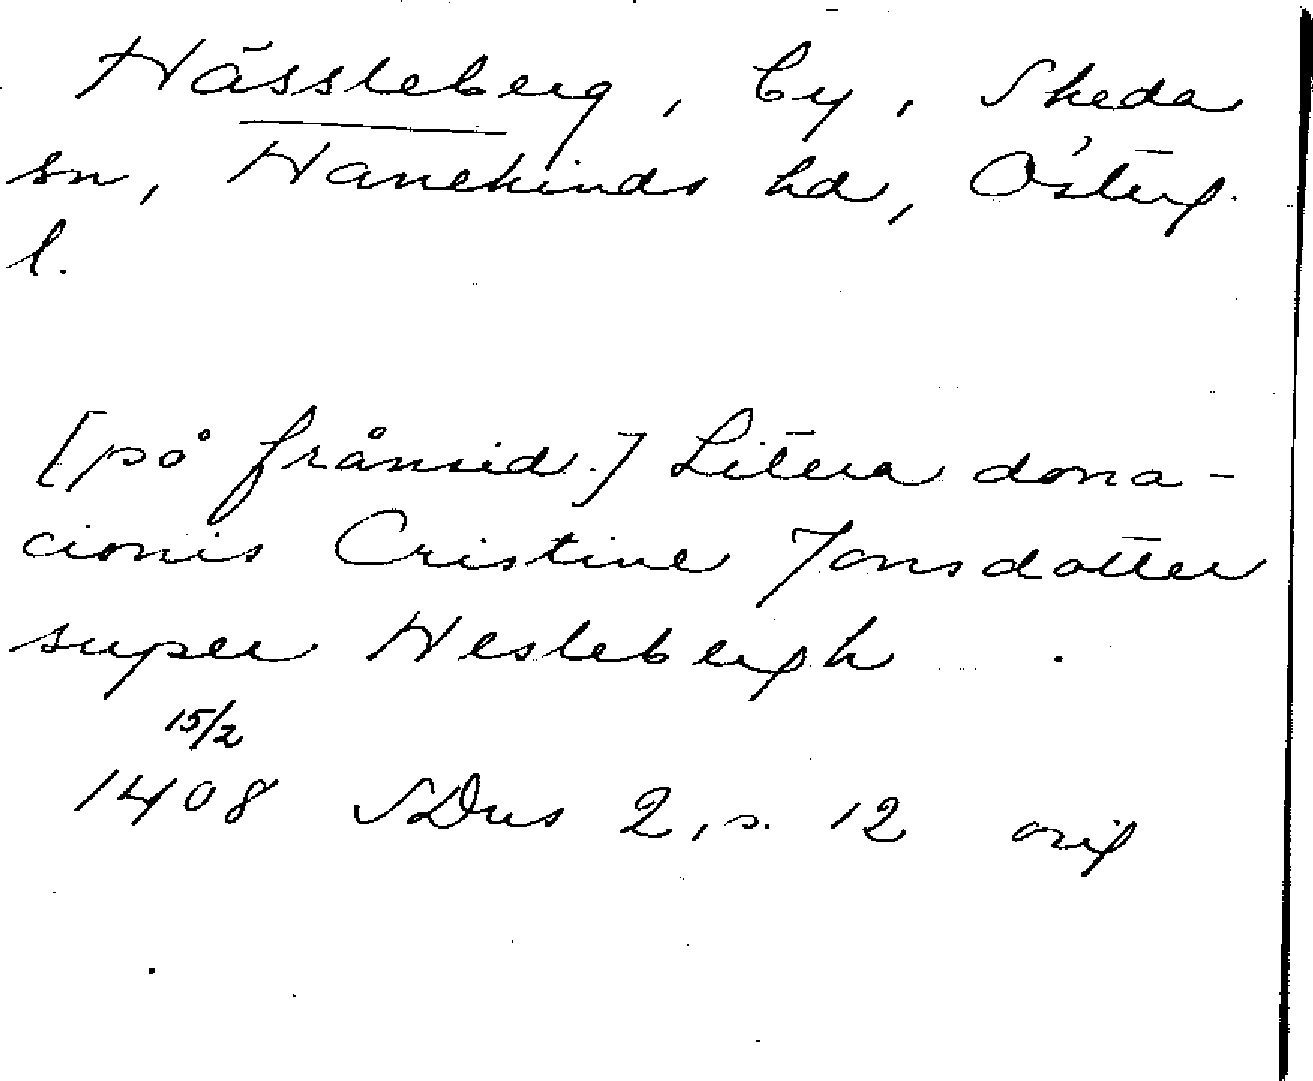 Hässleberg, by, Skeda
sn, Hanekinds hd, Österg.
l.
[på frånsid.] Litera dona-
cionis Cristine Jonsdotter
super Heslebergh
15/2
1408 SDns 2, s. 12 orig